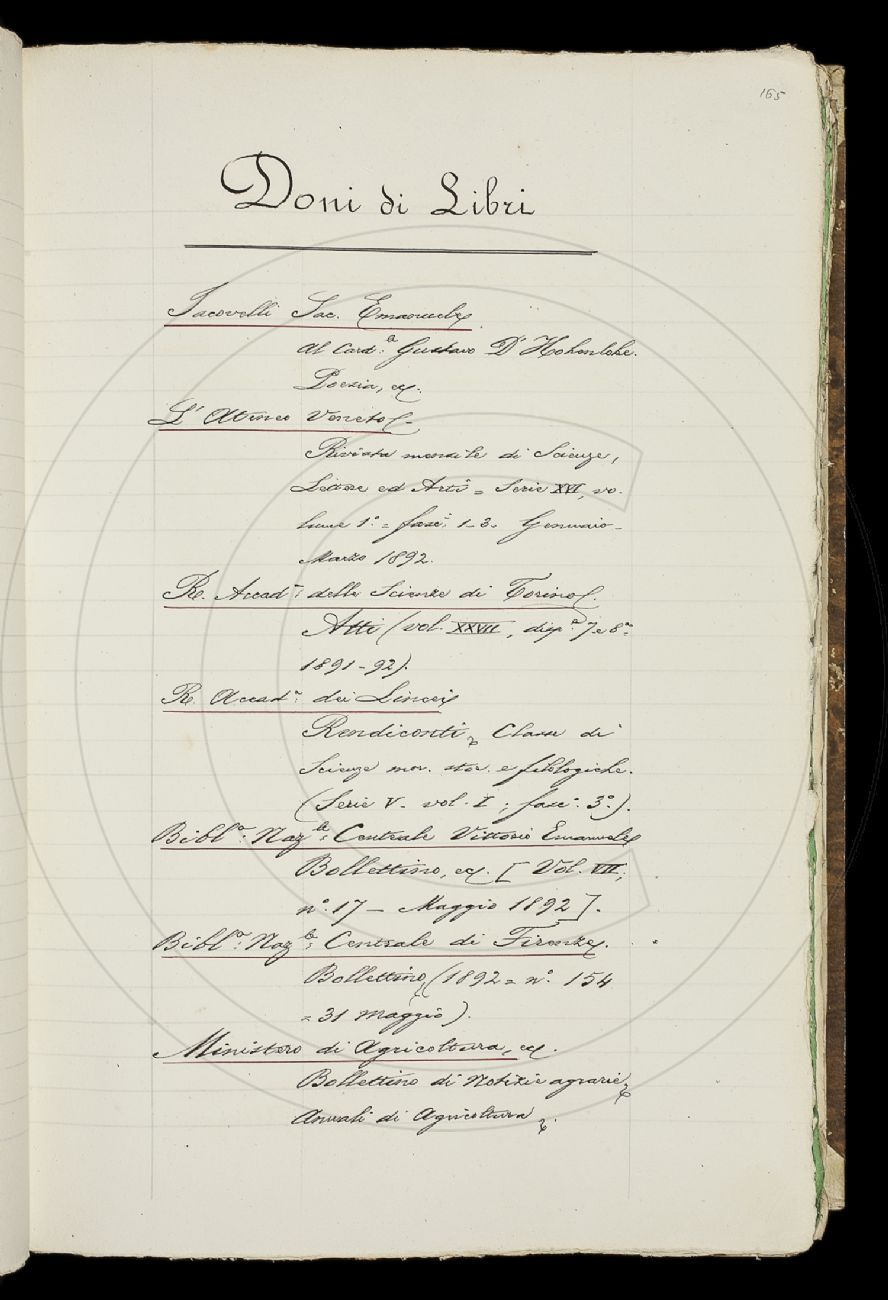 165
Doni di Libri
Iacovelli Sac. Emanuele
Al Card.le Gustavo D'Hohenlohe.
Poesia, ec.
L'Ateneo Veneto.
Rivista mensile di Scienze,
Lettere ed Arti = Serie XVI, vo-
lume 1º = fasc. 1-3. Gennaio-
Marzo 1892.
R. Accad.ª delle Scienze di Torino.
Atti (vol. XXVII, disp.ª 7 e 8ª
1891-92).
R. Accad.ª dei Lincei
Rendiconti, Classe di
Scienze mor. stor. e filologiche.
(Serie V. vol. I; fasc. 3º).
Bibl.ª Naz.le Centrale Vittorio Emanuele
Bollettino, ec. [Vol. VII,
nº 17 - Maggio 1892].
Bibl.ª Naz.le Centrale di Firenze.
Bollettino, (1892 = nº 154
= 31 maggio).
Ministero di Agricoltura, ec.
Bollettino di Notizie agrarie
Annali di Agricoltura